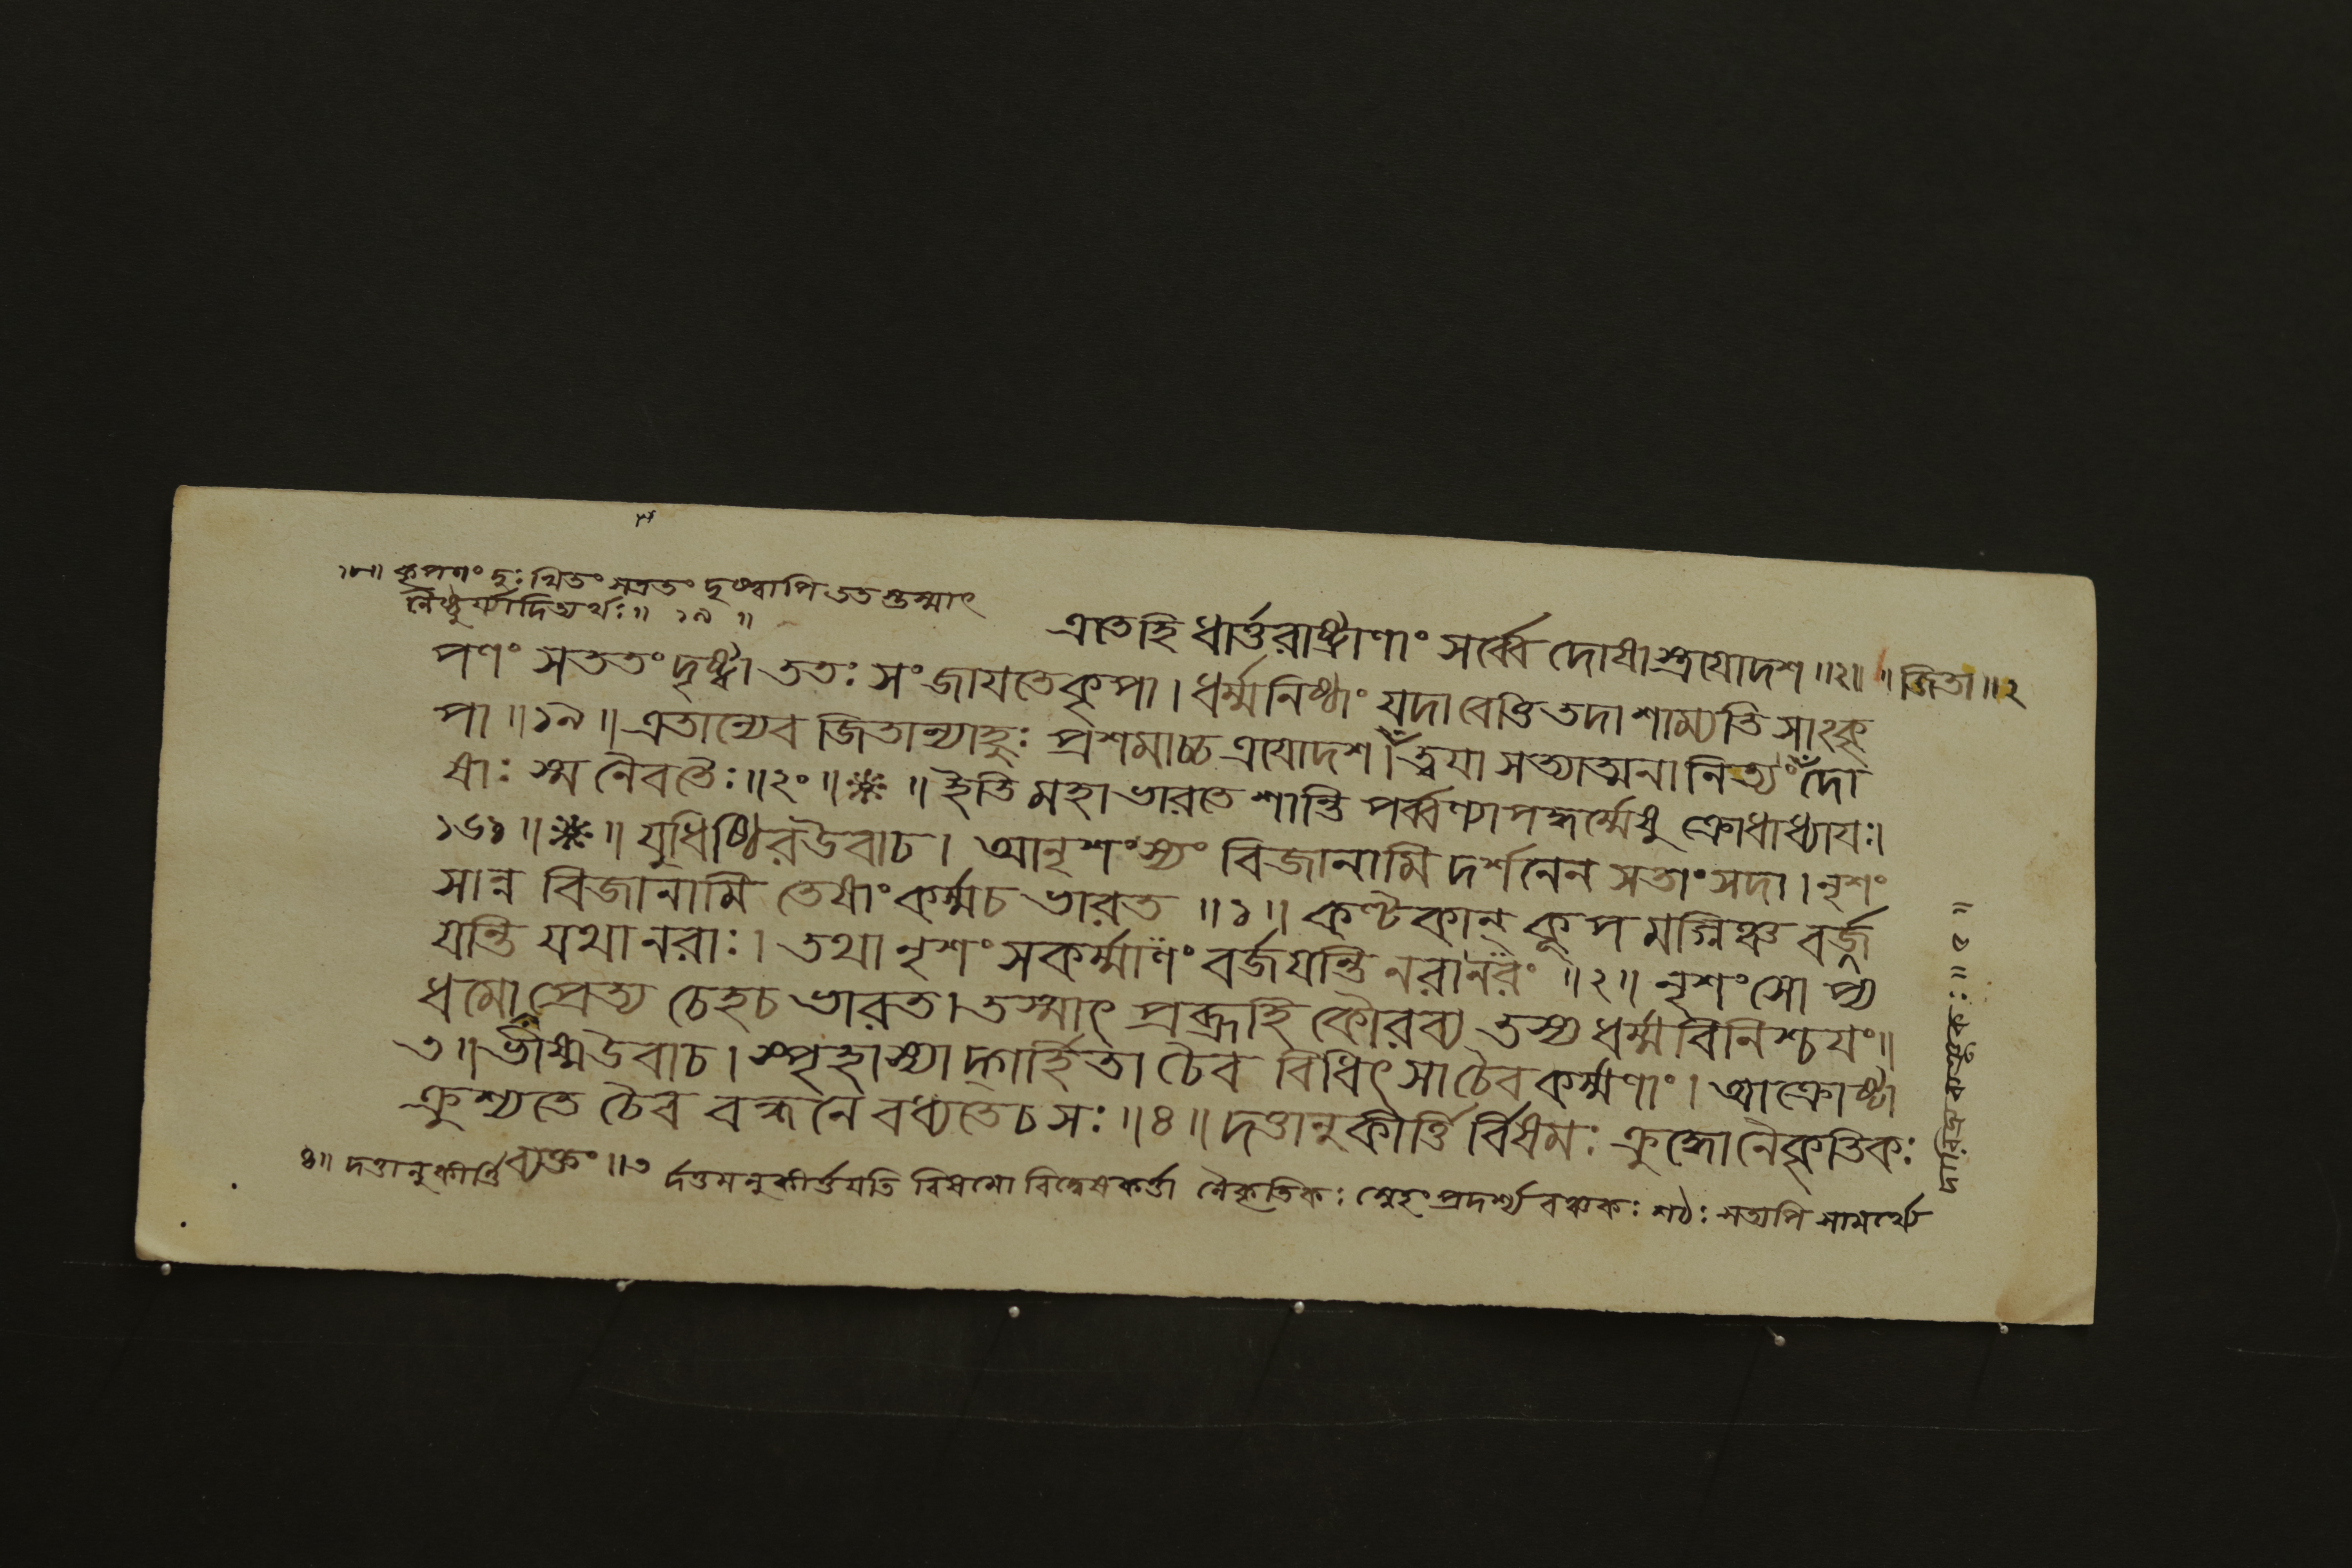 ১৮॥ কৃপণং দুঃখিতং সততং দৃষ্ট্বাপি ততস্তস্মাৎ
নৈষ্ঠুর্য্যাদিত্যর্থঃ॥ ১৯ ॥
এতেহি ধার্ত্তরাষ্ট্রাণাং সর্ব্বে দোষাস্ত্রয়োদশ॥২॥ ॥জিতা॥২
পণং সততং দৃষ্ট্বা ততঃ সংজায়তে কৃপা। ধর্ম্মনিষ্ঠাং যদা বেত্তি তদা শাম্যতি সাংকৃ
পা॥১৯॥এতান্যেব জিতান্যাহুঃ প্রশমাচ্চ ত্রয়োদশ। ত্বয়া সত্যাত্মনা নিত্যং দো
ষাঃ স্ম নৈবতৈঃ॥২০॥※॥ইতি মহাভারতে শান্তিপর্ব্বণ্যাপদ্ধর্ম্মেষু ক্রোধাধ্যায়ঃ।
১৬১॥※॥যুধিষ্ঠিরউবাচ। আনৃশংস্যং বিজানামি দর্শনেন সতাংসদা। নৃশং
সান্ন বিজানামি তেষাং কর্ম্মচ ভারত॥১॥ কণ্টকান্ কূপমগ্নিঞ্চ বর্জ্জ
য়ন্তি যথা নরাঃ। তথা নৃশংসকর্ম্মাণং বর্জয়ন্তি নরানরং॥২॥ নৃশংসো প্য
ধমো প্রেত্য চেহচ ভারত। তস্মাৎ প্রব্রূহি কৌরব্য তস্য ধর্ম্মবিনিশ্চয়ং॥
৩॥ভীষ্মউবাচ। স্পৃহাস্যাদ্গর্হিতা চৈব বিধিৎসাচৈব কর্ম্মণাং। আক্রোষ্টা
ক্রুশ্যতে চৈব বন্ধনে বধ্যতেচ সঃ॥৪॥ দত্তানুকীর্ত্তির্বিষমঃ ক্রুদ্ধোনৈকৃতিকঃ
ব্যক্তং॥৩
৪॥ দত্তানুকীর্ত্তি র্দত্তমনুকীর্ত্তয়তি বিষমো বিদ্বেষকর্ত্তা নৈকৃতিকঃ স্নেহং প্রদর্শ্য বঞ্চকঃ শঠঃ সত্যপি সামর্থ্যে